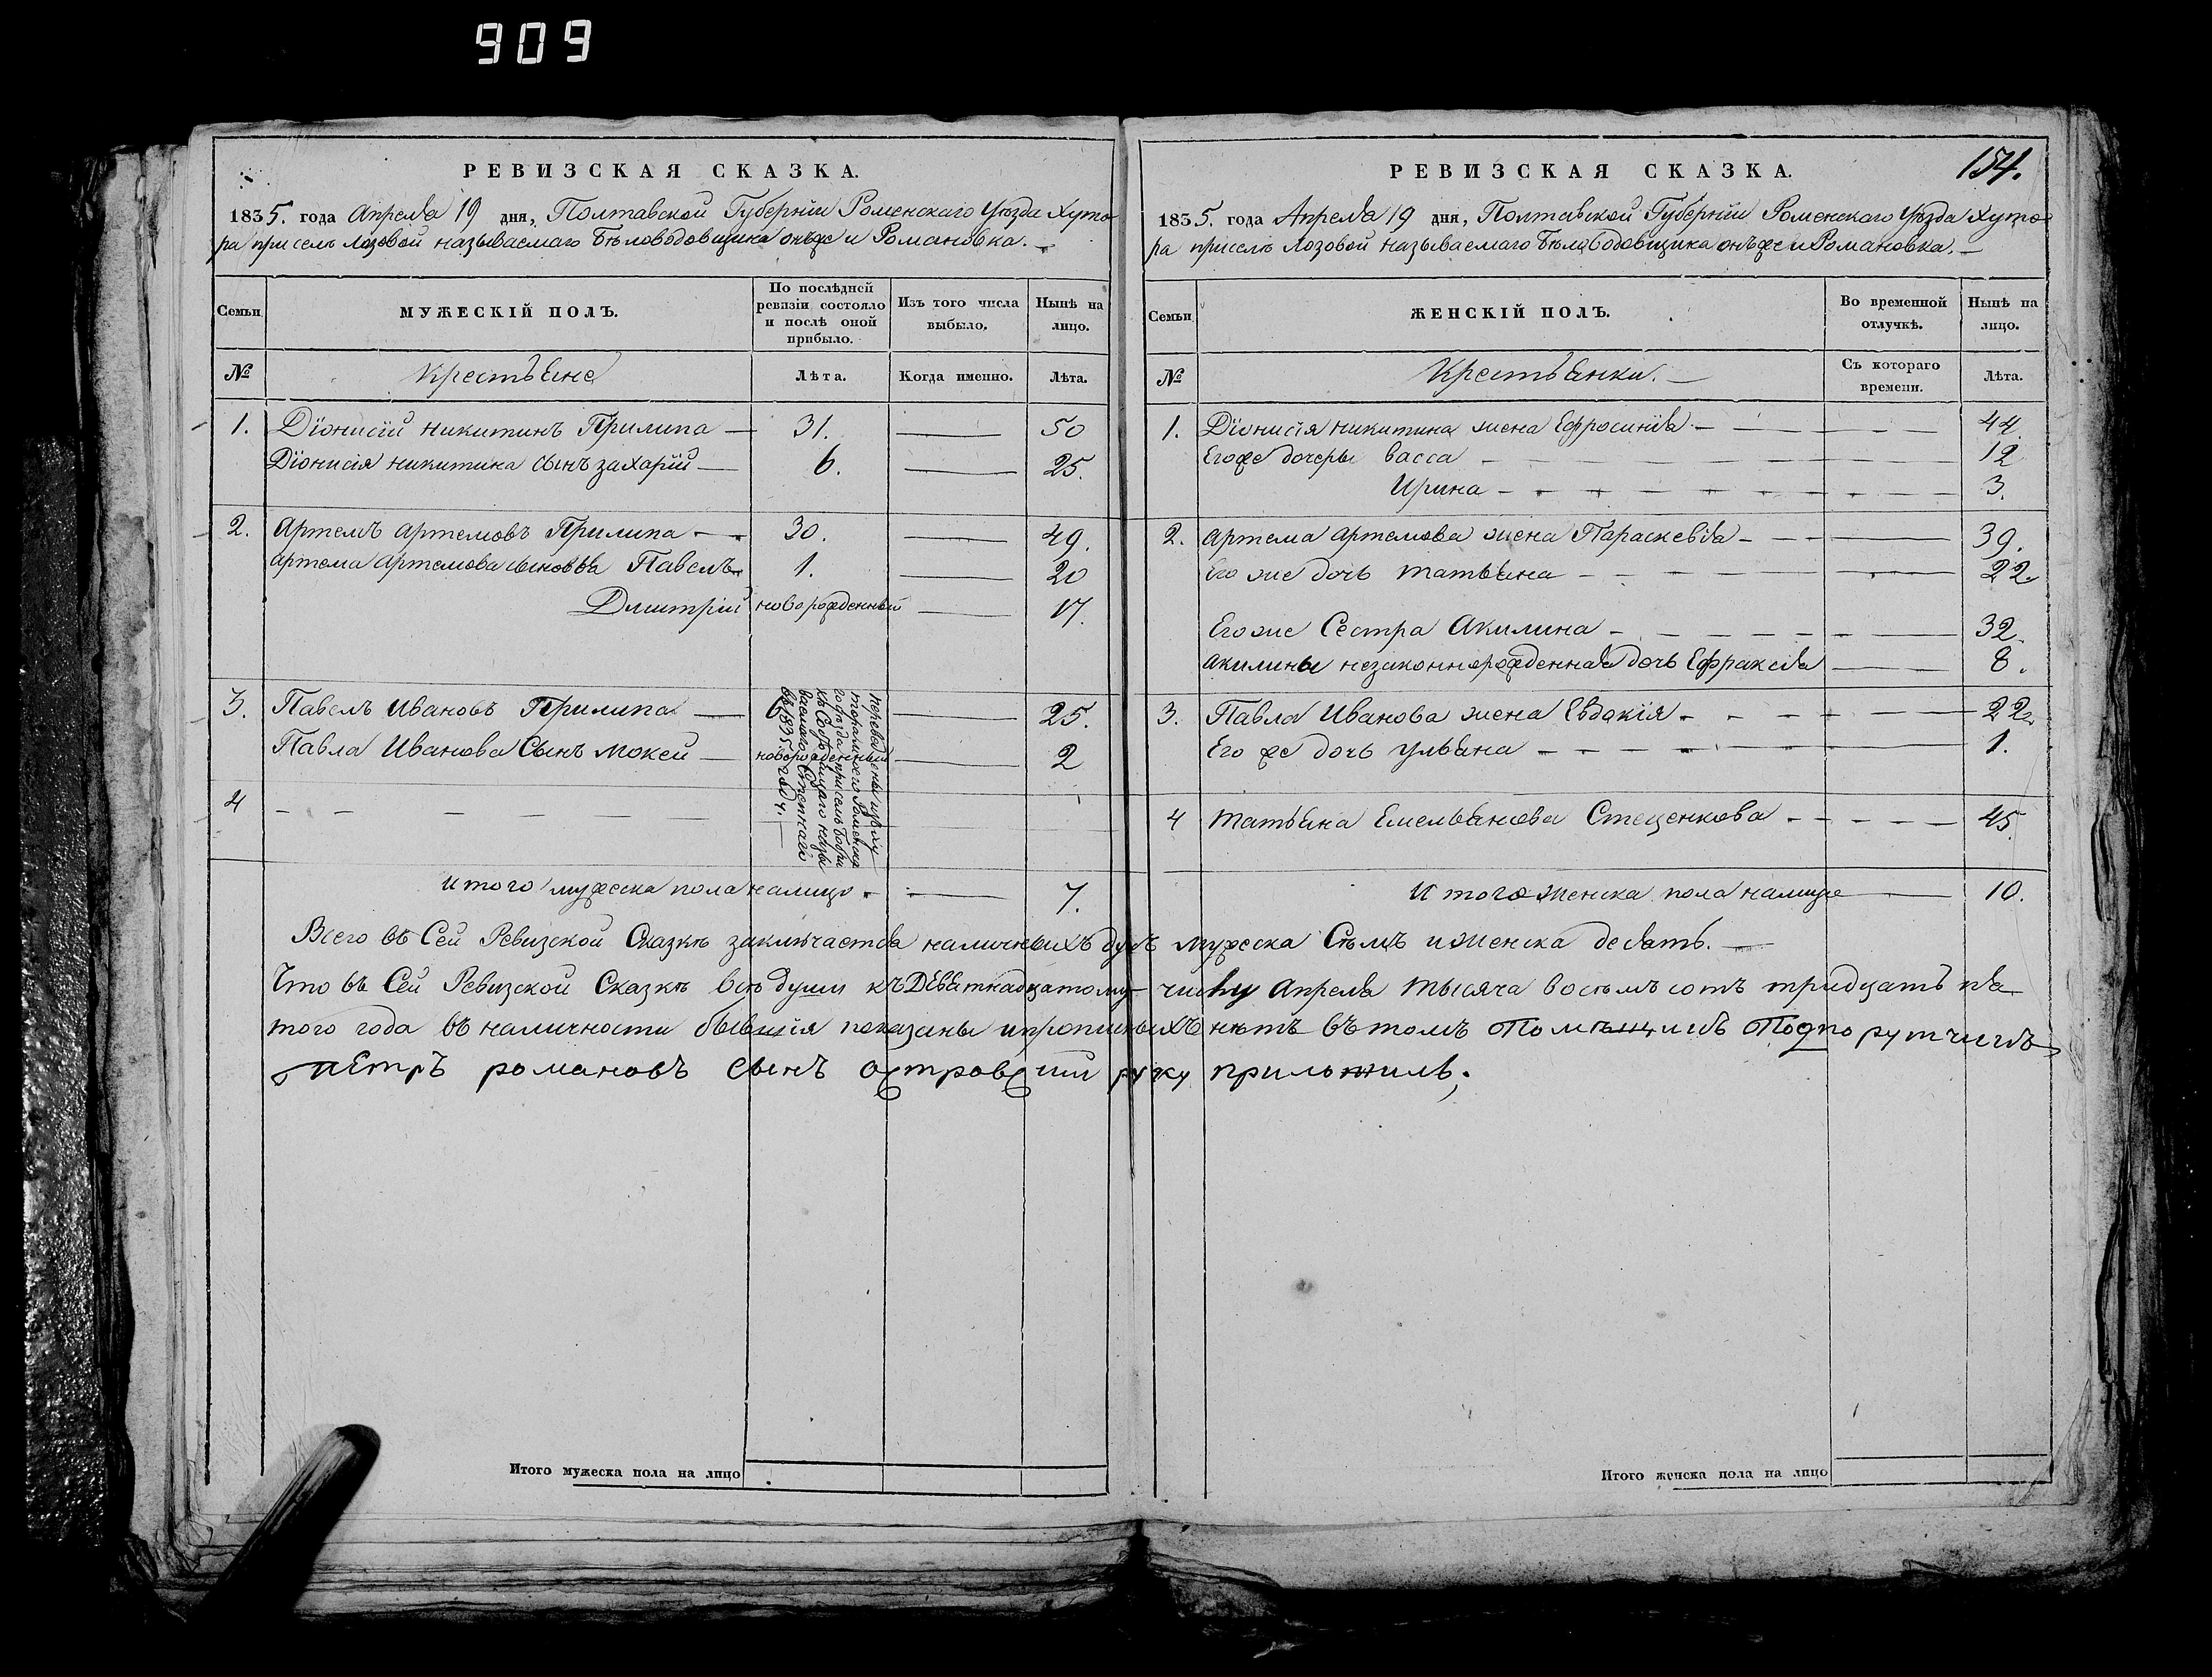 909
РЕВИЗСКАЯ СКАЗКА.
1835. года Апреля 19 дня, Полтавской Губерніи Роменскаго Уезда Хуто-
ра приселе Лозовой называемаго Беловодовщина онъже и Романовка.
Семьи
МУЖЕСКІЙ ПОЛЪ.
По послѣдней ревизіи состояло и послѣ оной прибыло.
Изъ того числа выбыло.
Нынѣ на лицо.
№
Крестьяне
Лѣта.
Когда именно.
Лѣта.
1. Діонисій Никитинъ Прилипа — 31. — 50
Діонисія Никитина сынъ Захарій — 6. — 25.
2. Артемъ Артемовъ Прилипа — 30. — 49.
Артема Артемова сыновья Павелъ 1. — 20
Дмитрій новорожденный — 17.
3. Павелъ Ивановъ Прилипа — 6 — 25.
Павла Иванова Сынъ Мокей — новорожденный — 2
4 — — — — — —
въ 1835 году.
Итого мужеска пола налицо — 7.
РЕВИЗСКАЯ СКАЗКА.
154.
1835. года Апреля 19 дня, Полтавской Губерніи Роменскаго Уезда Хуто-
ра приселе Лозовой называемаго Беловодовщина онъже и Романовка. —
Семьи
ЖЕНСКІЙ ПОЛЪ.
Во временной отлучкѣ.
Нынѣ на лицо.
№
Крестьянки. —
Съ котораго времени.
Лѣта.
1. Діонисія Никитина жена Ефросинія — 44.
Егоже дочеры Васса — 12
Ирина — 3.
2. Артема Артемова жена Параскевія — 39.
Его же дочь Татьяна — 22.
Его же Сестра Акилина — 32.
Акилины незаконнорожденная дочь Ефраксія — 8.
3. Павла Иванова жена Евдокія — 22.
Его же дочь Ульяна — 1.
4 Татьяна Емельянова Стеценкова — 45.
Итого женска пола налице — 10.
Всего въ Сей Ревизской Сказке заключается наличныхъ душъ мужеска Семъ и женска десять. —
Что въ Сей Ревизской Сказкѣ всѣ души къ Девятнадцатому числу Апреля тысяча восемъ сотъ тридцать пя-
того года въ наличности бывшія показаны и прописныхъ нетъ въ томъ Помещикъ Подпорутчикъ
Петръ Романовъ сынъ Островский руку приложилъ;
Итого мужеска пола на лицо
Итого женска пола на лицо